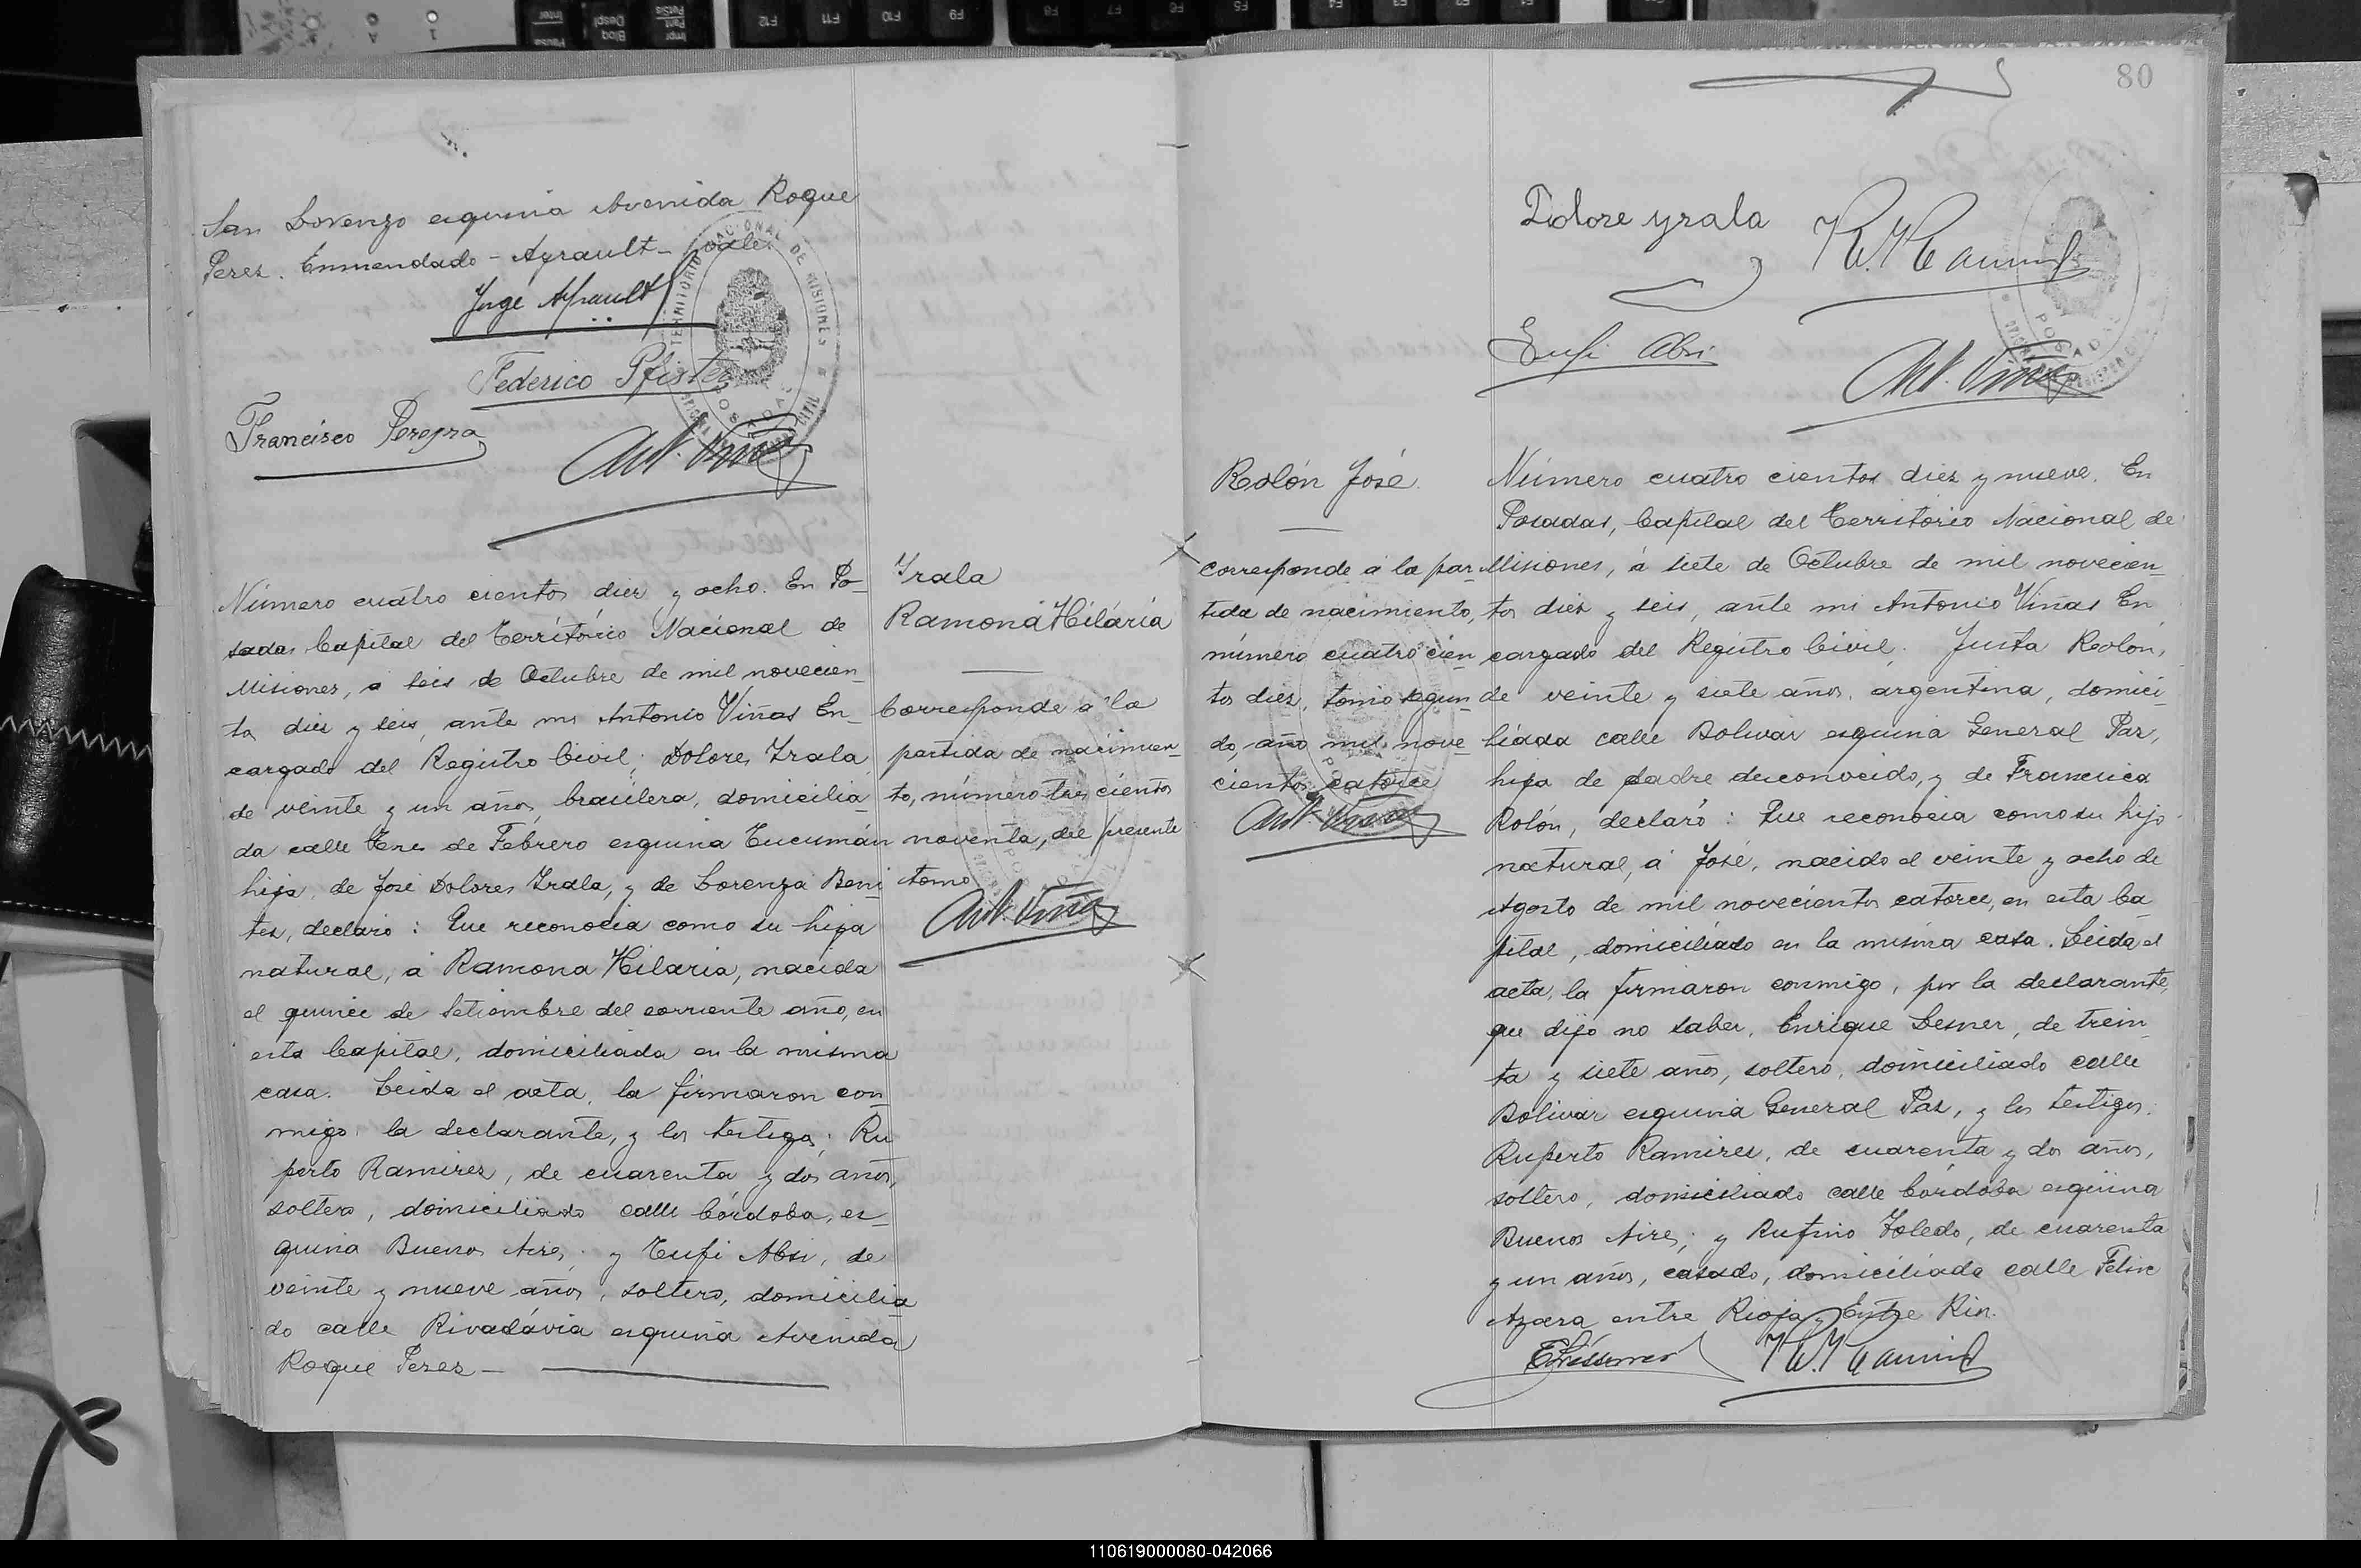 San Lorenzo esquina Avenida Roque
Perez. Enmendado - Ayrault - vale.
Jorge Ayrault
Federico Pfister
Francisco Pereyra
Ant. Viñas
TERRITORIO NACIONAL DE MISIONES
POSADAS
Número cuatro cientos diez y ocho. En Po-
sadas Capital del Território Nacional de
Misiones, á seis de Octubre de mil novecien-
tos diez y seis, ante mi Antonio Viñas En-
cargado del Registro Civil; Dolores Irala,
de veinte y un años, brasilera, domicilia-
da calle Tres de Febrero esquina Tucumán
hija, de José Dolores Irala, y de Lorenza Beni-
tes, declaró: Que reconocia como su hija
natural, á Ramona Hilaria, nacida
el quince de Setiembre del corriente año, en
esta Capital, domiciliada en la misma
casa. Leida el acta, la firmaron con-
migo, la declarante, y los testigos: Ru-
perto Ramirez, de cuarenta y dos años,
soltero, domiciliado calle Córdoba, es-
quina Buenos Aires; y Tufi Absi, de
veinte y nueve años, soltero, domicilia-
do calle Rivadávia esquina Avenida
Roque Perez -
Irala
Ramona Hilária
Corresponde á la
partida de nacimien-
to, número tres cientos
noventa, del presente
tomo
Ant. Viñas
80
Dolore yrala
R. Ramirez
Tufi Absi
Ant. Viñas
POSADAS
Rolón José.
corresponde á la par-
tida de nacimiento,
número cuatro cien-
tos diez, tomo segun-
do, año mil nove-
cientos catorce
Ant. Viñas
Número cuatro cientos diez y nueve. En
Posadas, Capital del Territorio Nacional de
Misiones, á siete de Octubre de mil novecien-
tos diez y seis, ante mi Antonio Viñas En-
cargado del Registro Civil; Justa Rolon,
de veinte y siete años, argentina, domici-
liada calle Bolivar esquina General Paz,
hija de padre desconocido, y de Francisca
Rolón, declaró: Que reconocia como su hijo
natural, á José, nacido el veinte y ocho de
Agosto de mil novecientos catorce, en esta Ca-
pital, domiciliado en la misma casa. Leida el
acta, la firmaron conmigo, por la declarante,
que dijo no saber, Enrique Lesner, de trein-
ta y siete años, soltero, domiciliado calle
Bolivar esquina General Paz, y los testigos:
Ruperto Ramirez, de cuarenta y dos años,
soltero, domiciliado calle Córdoba esquina
Buenos Aires; y Rufino Toledo, de cuarenta
y un años, casado, domiciliado calle Felix
Azara entre Rioja y Entre Rios.
R. Ramirez
110619000080-042066